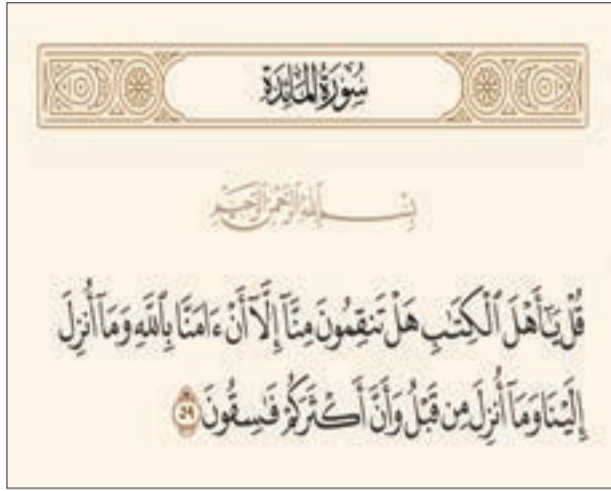 سُورَةُ المَائِدَةِ
بِسْمِ ٱللَّهِ ٱلرَّحْمَٰنِ ٱلرَّحِيمِ
قُلْ يَٰٓأَهْلَ ٱلْكِتَٰبِ هَلْ تَنقِمُونَ مِنَّآ إِلَّآ أَنْ ءَامَنَّا بِٱللَّهِ وَمَآ أُنزِلَ
إِلَيْنَا وَمَآ أُنزِلَ مِن قَبْلُ وَأَنَّ أَكْثَرَكُمْ فَٰسِقُونَ ٥٩